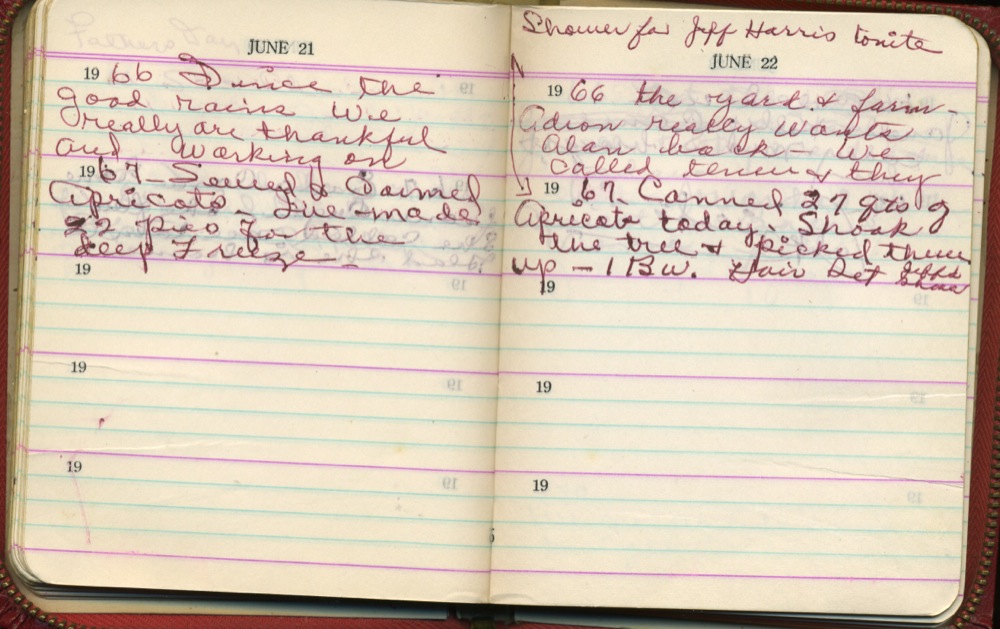 JUNE 21
1966 Since the
good rains we
really are thankful
and working on
1967 - Sewed & Canned
Apricots - Sue made
22 pies for the
deep freeze -
19
19
19
Shower for Jeff Harris tonite
JUNE 22
1966 the yard & farm -
really wants
Alan back - We
called them & they
1967. Canned 27 qts of
Apricots today. Shook
the tree & picked them
up - 1 Bu. Hair Set
19
19
19